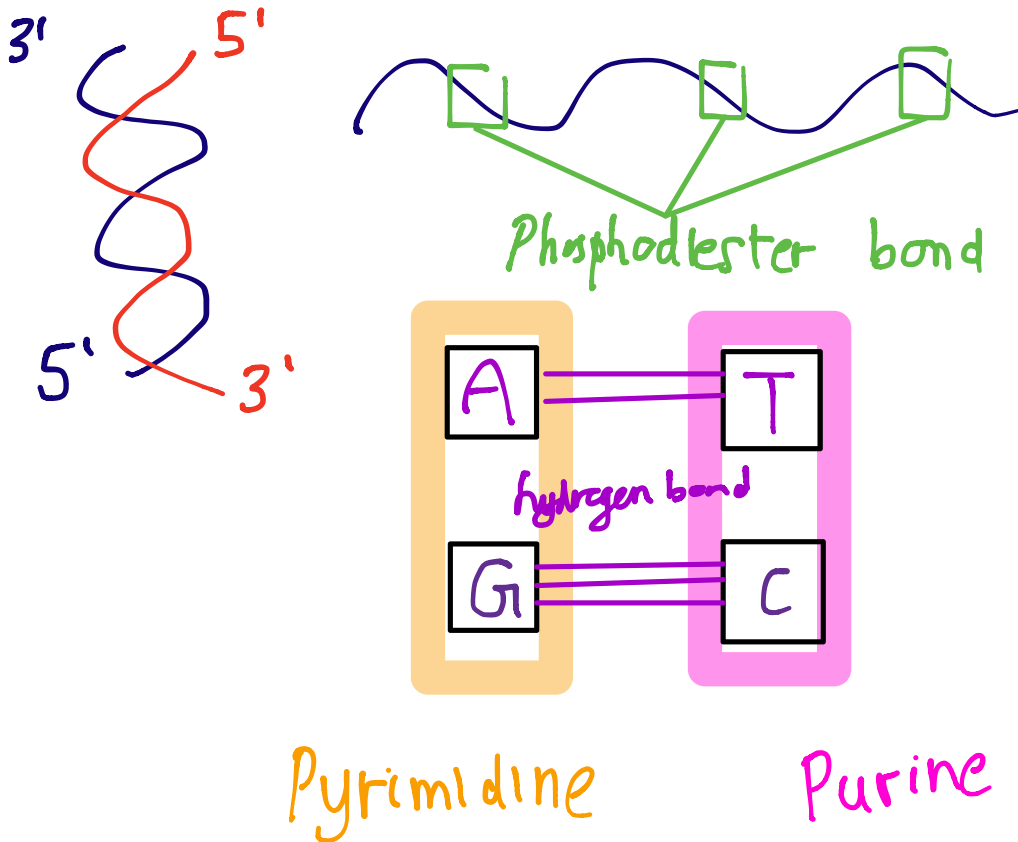 3'
5'
5'
3'
Phosphodiester bond
A
T
hydrogen bond
G
C
Pyrimidine
Purine